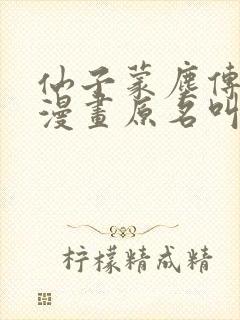 仙子蒙塵傳
漫畫原名叫
柠檬精成精